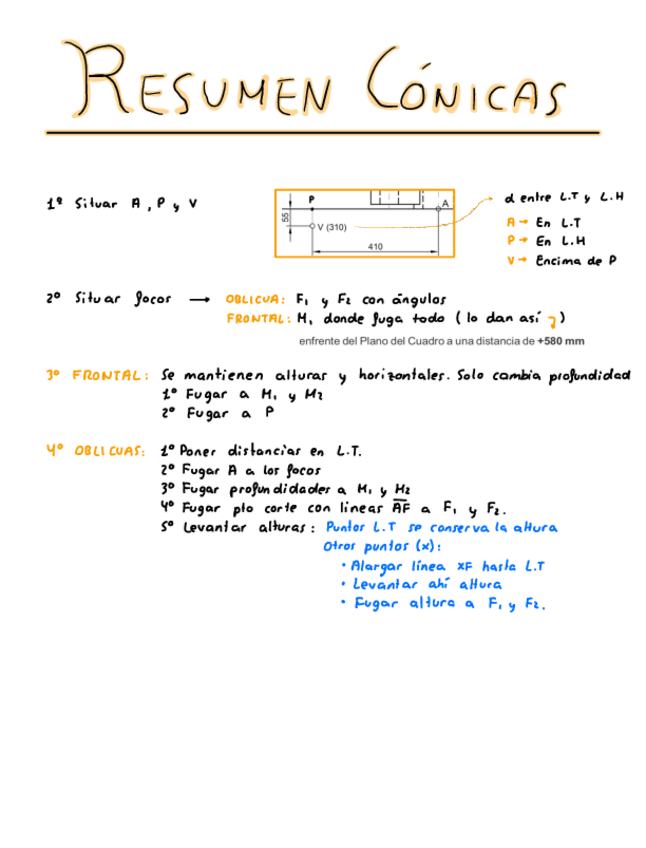 RESUMEN CÓNICAS
1º Situar A, P y V
P
A
55
V (310)
410
d entre L.T y L.H
A → En L.T
P → En L.H
V → Encima de P
2º Situar focos → OBLICUA: F₁ y F₂ con ángulos
FRONTAL: M, donde fuga todo (lo dan así ↴)
enfrente del Plano del Cuadro a una distancia de +580 mm
3º FRONTAL: Se mantienen alturas y horizontales. Solo cambia profundidad
1º Fugar a M₁ y M₂
2º Fugar a P
4º OBLICUAS: 1º Poner distancias en L.T.
2º Fugar A a los focos
3º Fugar profundidades a M₁ y M₂
4º Fugar pto corte con lineas A̅F̅ a F₁ y F₂.
5º Levantar alturas: Puntos L.T se conserva la altura
Otros puntos (x):
· Alargar línea XF hasta L.T
· Levantar ahí altura
· Fugar altura a F₁ y F₂.